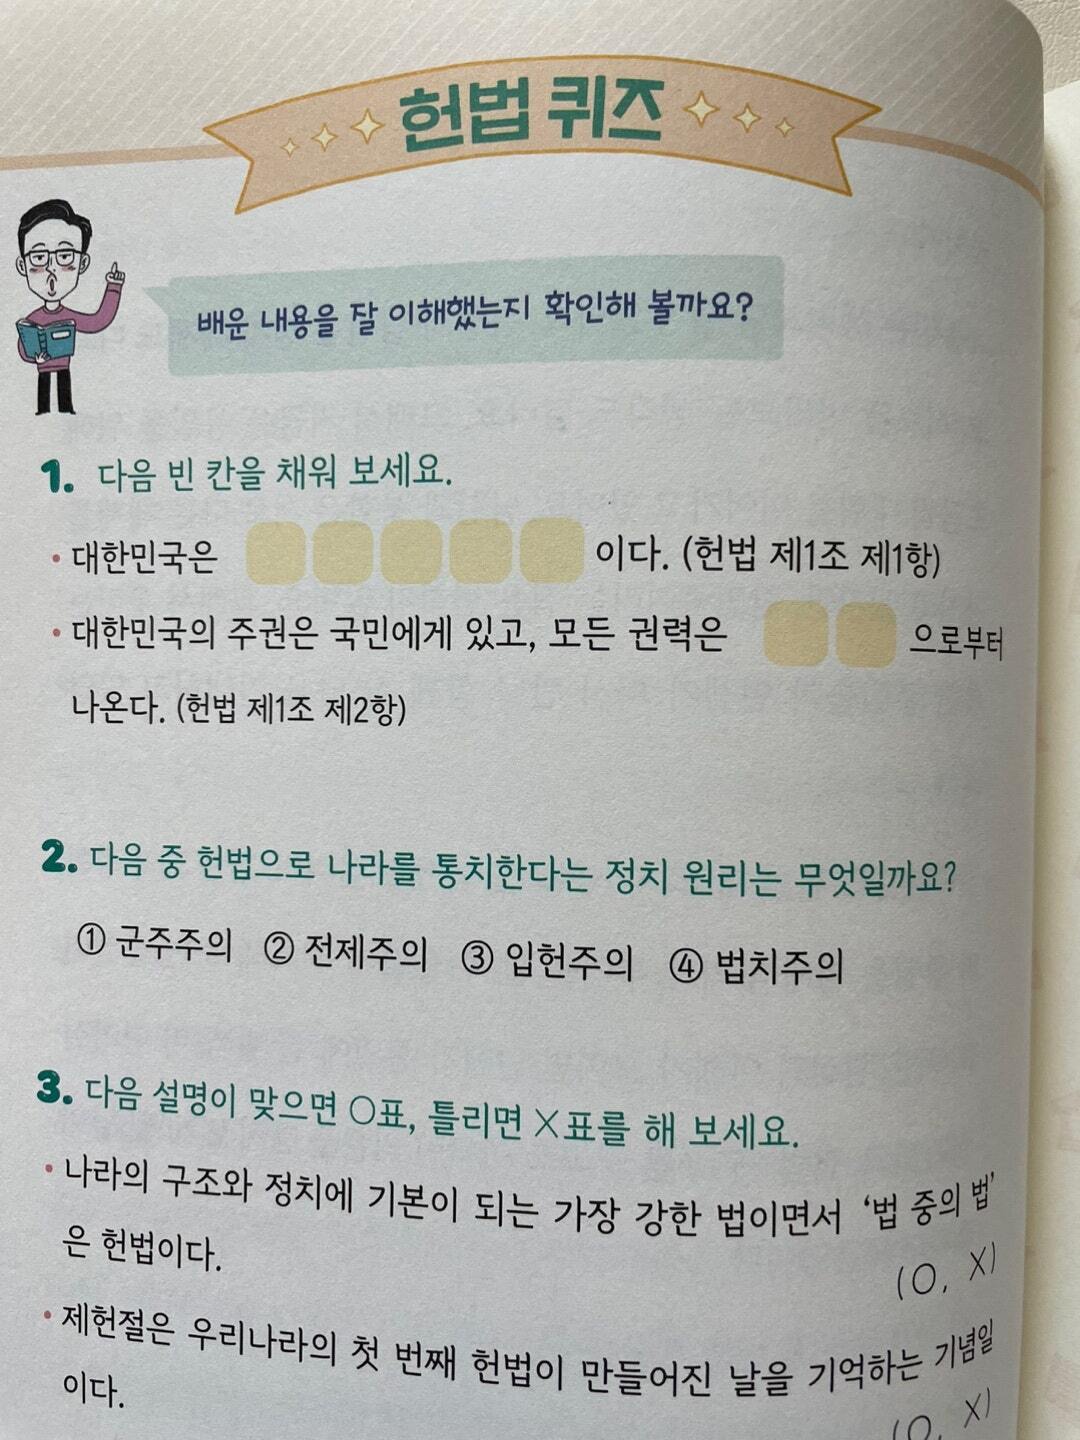 헌법 퀴즈
배운 내용을 잘 이해했는지 확인해 볼까요?
1. 다음 빈 칸을 채워 보세요.
• 대한민국은 이다. (헌법 제1조 제1항)
• 대한민국의 주권은 국민에게 있고, 모든 권력은 으로부터
나온다. (헌법 제1조 제2항)
2. 다음 중 헌법으로 나라를 통치한다는 정치 원리는 무엇일까요?
① 군주주의 ② 전제주의 ③ 입헌주의 ④ 법치주의
3. 다음 설명이 맞으면 O표, 틀리면 X표를 해 보세요.
• 나라의 구조와 정치에 기본이 되는 가장 강한 법이면서 ‘법 중의 법’
은 헌법이다.
(O, X)
• 제헌절은 우리나라의 첫 번째 헌법이 만들어진 날을 기억하는 기념일
이다.
(O, X)